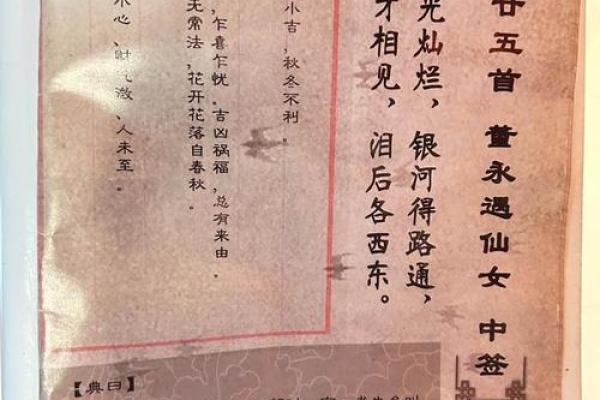 廿五首 董永遇仙女 中签
光灿烂，银河得路通，
才相见，泪后各西东。
小吉，秋冬不利。
，乍喜乍忧。吉凶祸福，总有来由。
无常法，花开花落自春秋。
水心、
激、人未至。
【典曰】